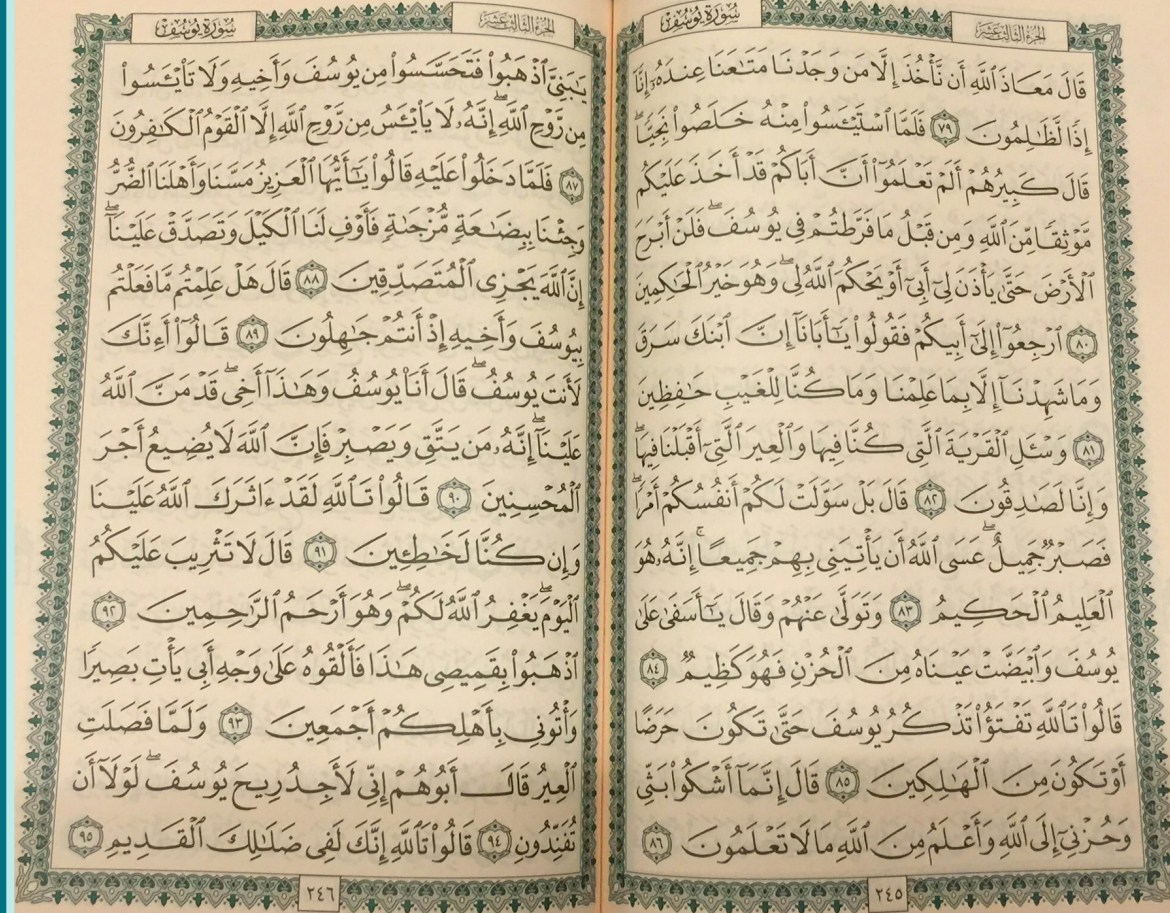 سُورَةُ يُوسُفَ
الجُزْءُ الثَّالِثَ عَشَرَ
قَالَ مَعَاذَ ٱللَّهِ أَن نَّأْخُذَ إِلَّا مَن وَجَدْنَا مَتَٰعَنَا عِندَهُۥٓ إِنَّآ
إِذًا لَّظَٰلِمُونَ ٧٩ فَلَمَّا ٱسْتَيْـَٔسُوا۟ مِنْهُ خَلَصُوا۟ نَجِيًّا ۖ
قَالَ كَبِيرُهُمْ أَلَمْ تَعْلَمُوٓا۟ أَنَّ أَبَاكُمْ قَدْ أَخَذَ عَلَيْكُم
مَّوْثِقًا مِّنَ ٱللَّهِ وَمِن قَبْلُ مَا فَرَّطتُمْ فِى يُوسُفَ ۖ فَلَنْ أَبْرَحَ
ٱلْأَرْضَ حَتَّىٰ يَأْذَنَ لِىٓ أَبِىٓ أَوْ يَحْكُمَ ٱللَّهُ لِى ۖ وَهُوَ خَيْرُ ٱلْحَٰكِمِينَ
٨٠ ٱرْجِعُوٓا۟ إِلَىٰٓ أَبِيكُمْ فَقُولُوا۟ يَٰٓأَبَانَآ إِنَّ ٱبْنَكَ سَرَقَ
وَمَا شَهِدْنَآ إِلَّا بِمَا عَلِمْنَا وَمَا كُنَّا لِلْغَيْبِ حَٰفِظِينَ
٨١ وَسْـَٔلِ ٱلْقَرْيَةَ ٱلَّتِى كُنَّا فِيهَا وَٱلْعِيرَ ٱلَّتِىٓ أَقْبَلْنَا فِيهَا ۖ
وَإِنَّا لَصَٰدِقُونَ ٨٢ قَالَ بَلْ سَوَّلَتْ لَكُمْ أَنفُسُكُمْ أَمْرًا ۖ
فَصَبْرٌ جَمِيلٌ ۖ عَسَى ٱللَّهُ أَن يَأْتِيَنِى بِهِمْ جَمِيعًا ۚ إِنَّهُۥ هُوَ
ٱلْعَلِيمُ ٱلْحَكِيمُ ٨٣ وَتَوَلَّىٰ عَنْهُمْ وَقَالَ يَٰٓأَسَفَىٰ عَلَىٰ
يُوسُفَ وَٱبْيَضَّتْ عَيْنَاهُ مِنَ ٱلْحُزْنِ فَهُوَ كَظِيمٌ ٨٤
قَالُوا۟ تَٱللَّهِ تَفْتَؤُا۟ تَذْكُرُ يُوسُفَ حَتَّىٰ تَكُونَ حَرَضًا
أَوْ تَكُونَ مِنَ ٱلْهَٰلِكِينَ ٨٥ قَالَ إِنَّمَآ أَشْكُوا۟ بَثِّى
وَحُزْنِىٓ إِلَى ٱللَّهِ وَأَعْلَمُ مِنَ ٱللَّهِ مَا لَا تَعْلَمُونَ ٨٦
٢٤٥
سُورَةُ يُوسُفَ
الجُزْءُ الثَّالِثَ عَشَرَ
يَٰبَنِىَّ ٱذْهَبُوا۟ فَتَحَسَّسُوا۟ مِن يُوسُفَ وَأَخِيهِ وَلَا تَا۟يْـَٔسُوا۟
مِن رَّوْحِ ٱللَّهِ ۖ إِنَّهُۥ لَا يَا۟يْـَٔسُ مِن رَّوْحِ ٱللَّهِ إِلَّا ٱلْقَوْمُ ٱلْكَٰفِرُونَ
٨٧ فَلَمَّا دَخَلُوا۟ عَلَيْهِ قَالُوا۟ يَٰٓأَيُّهَا ٱلْعَزِيزُ مَسَّنَا وَأَهْلَنَا ٱلضُّرُّ
وَجِئْنَا بِبِضَٰعَةٍ مُّزْجَىٰةٍ فَأَوْفِ لَنَا ٱلْكَيْلَ وَتَصَدَّقْ عَلَيْنَآ ۖ
إِنَّ ٱللَّهَ يَجْزِى ٱلْمُتَصَدِّقِينَ ٨٨ قَالَ هَلْ عَلِمْتُم مَّا فَعَلْتُم
بِيُوسُفَ وَأَخِيهِ إِذْ أَنتُمْ جَٰهِلُونَ ٨٩ قَالُوٓا۟ أَءِنَّكَ
لَأَنتَ يُوسُفُ ۖ قَالَ أَنَا۠ يُوسُفُ وَهَٰذَآ أَخِى ۖ قَدْ مَنَّ ٱللَّهُ
عَلَيْنَآ ۖ إِنَّهُۥ مَن يَتَّقِ وَيَصْبِرْ فَإِنَّ ٱللَّهَ لَا يُضِيعُ أَجْرَ
ٱلْمُحْسِنِينَ ٩٠ قَالُوا۟ تَٱللَّهِ لَقَدْ ءَاثَرَكَ ٱللَّهُ عَلَيْنَا
وَإِن كُنَّا لَخَٰطِـِٔينَ ٩١ قَالَ لَا تَثْرِيبَ عَلَيْكُمُ
ٱلْيَوْمَ ۖ يَغْفِرُ ٱللَّهُ لَكُمْ ۖ وَهُوَ أَرْحَمُ ٱلرَّٰحِمِينَ ٩٢
ٱذْهَبُوا۟ بِقَمِيصِى هَٰذَا فَأَلْقُوهُ عَلَىٰ وَجْهِ أَبِى يَأْتِ بَصِيرًا
وَأْتُونِى بِأَهْلِكُمْ أَجْمَعِينَ ٩٣ وَلَمَّا فَصَلَتِ
ٱلْعِيرُ قَالَ أَبُوهُمْ إِنِّى لَأَجِدُ رِيحَ يُوسُفَ ۖ لَوْلَآ أَن
تُفَنِّدُونِ ٩٤ قَالُوا۟ تَٱللَّهِ إِنَّكَ لَفِى ضَلَٰلِكَ ٱلْقَدِيمِ ٩٥
٢٤٦